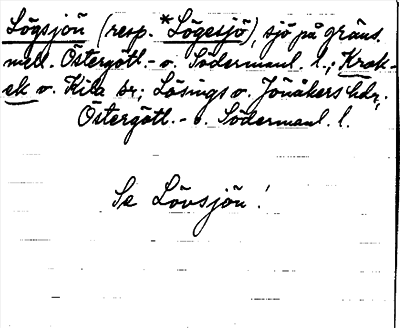 Lögsjön (resp. *Lögesjö), sjö på gräns.
mell. Östergötl.- o. Södermanl. l.; Krok-
ek o. Kila sr; Lösings o. Jönåkers hdr,
Östergötl.- o. Södermanl. l.
Se Lövsjön!